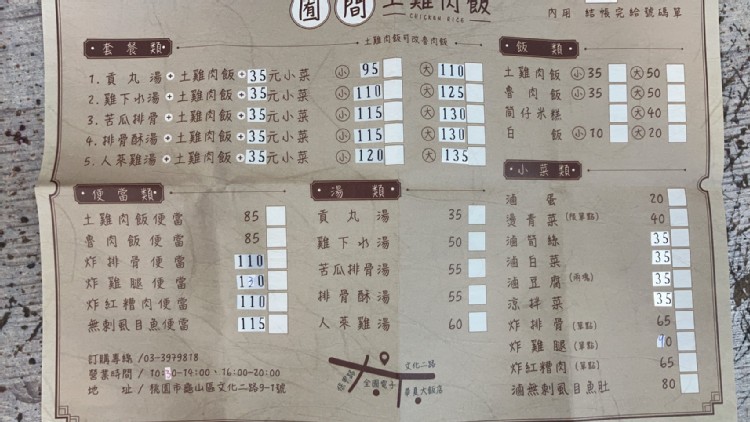 間 土雞肉飯
CHICKEN RICE
內用 結帳完給號碼單
套餐類
土雞肉飯可改魯肉飯
1. 貢丸湯+土雞肉飯+35元小菜 小 95 大 110
2. 雞下水湯+土雞肉飯+35元小菜 小 110 大 125
3. 苦瓜排骨+土雞肉飯+35元小菜 小 115 大 130
4. 排骨酥湯+土雞肉飯+35元小菜 小 115 大 130
5. 人菜雞湯+土雞肉飯+35元小菜 小 120 大 135
飯類
土雞肉飯 小 35 大 50
魯肉飯 小 35 大 50
筒仔米糕 大 40
白飯 小 10 大 20
便當類
土雞肉飯便當 85
魯肉飯便當 85
炸排骨便當 110
炸雞腿便當
炸紅糟肉便當 110
無刺虱目魚便當 115
湯類
貢丸湯 35
雞下水湯 50
苦瓜排骨湯 55
排骨酥湯 55
人菜雞湯 60
小菜類
滷蛋 20
燙青菜 (限單點) 40
滷筍絲 35
滷白菜 35
滷豆腐 (兩塊) 35
涼拌菜 35
炸排骨 (單點) 65
炸雞腿 (單點)
炸紅糟肉 (單點) 65
滷無刺虱目魚肚 80
訂購專線 /03-3999818
營業時間 / -14:00、16:00-20:00
地 址 / 桃園市龜山區文化二路9-1號
文化二路
復興路
全國電子
華夏大飯店